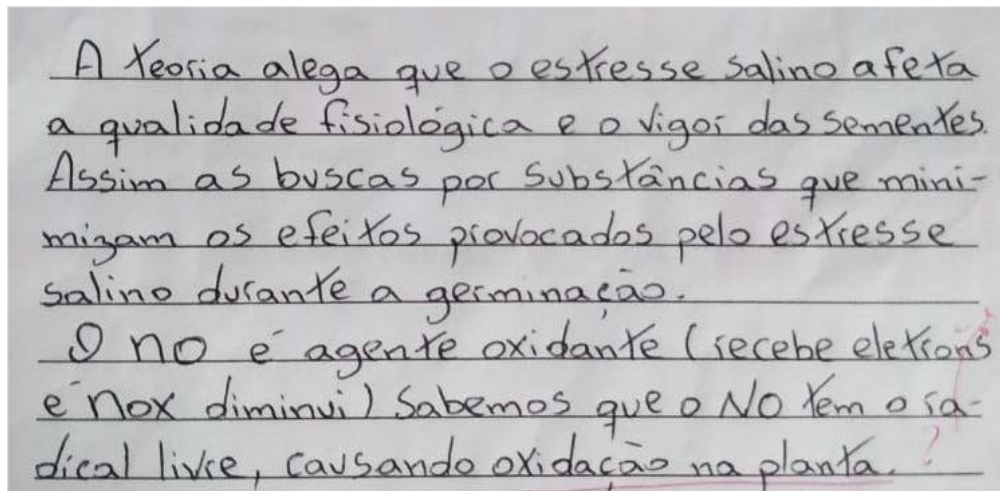 A teoria alega que o estresse salino afeta
a qualidade fisiológica e o vigor das sementes.
Assim as buscas por substâncias que mini-
mizam os efeitos provocados pelo estresse
salino durante a germinação.
O NO é agente oxidante (recebe eletrons
e nox diminui) Sabemos que o NO tem o ra-
dical livre, causando oxidação na planta. ?